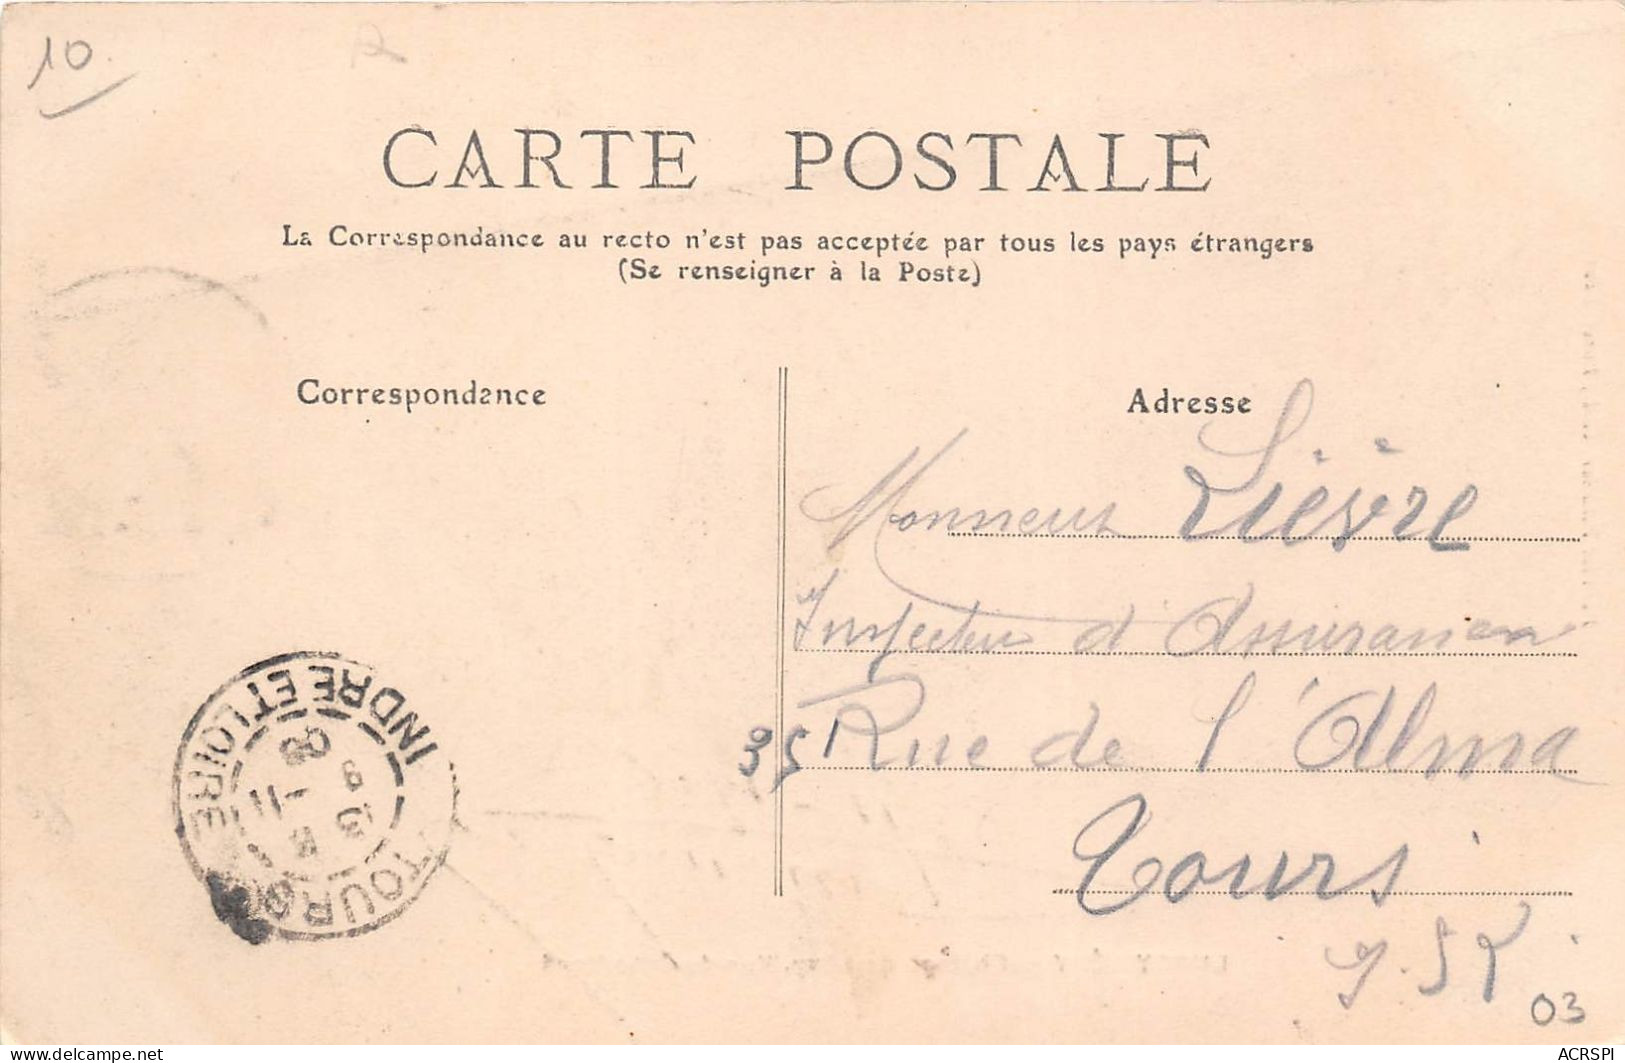 10
CARTE POSTALE
La Correspondance au recto n'est pas acceptée par tous les pays étrangers
(Se renseigner à la Poste)
Correspondance
Adresse
Monsieur Lièvre
Inspecteur d'Assurances
35 Rue de l'Alma
Tours
INDRE ET LOIRE
TOURS
03
ACRSPI
delcampe.net